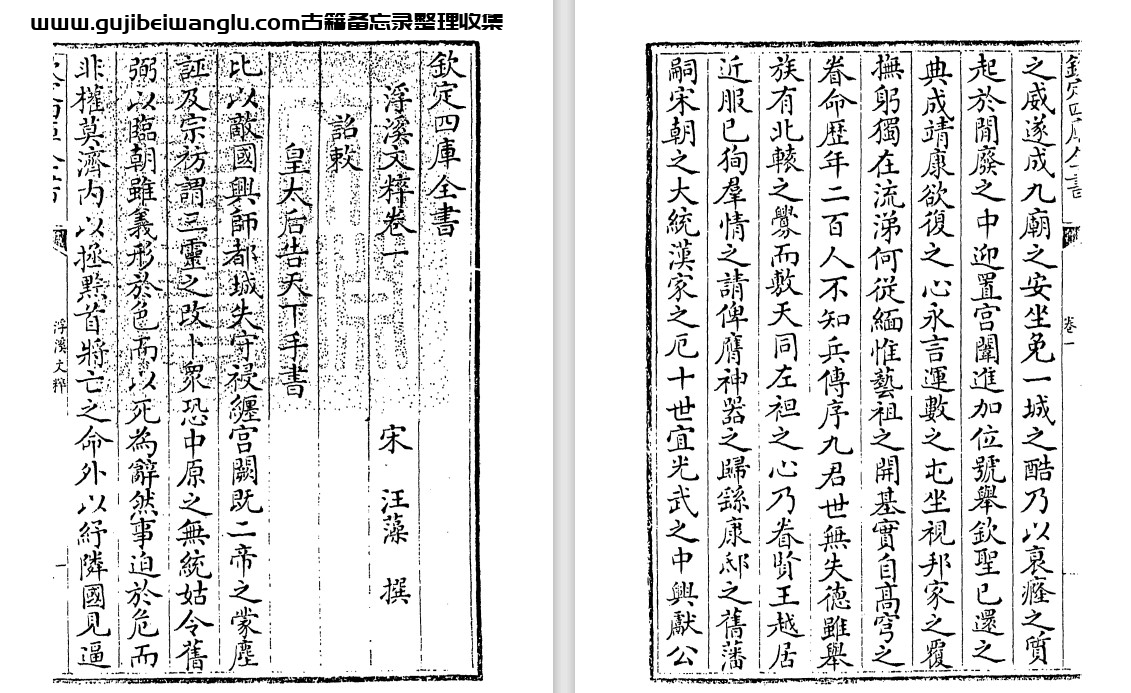 www.gujibeiwanglu.com古籍备忘录整理收集
欽定四庫全書
浮溪文粹卷一 宋 汪藻 撰
詔敕
皇太后告天下手書
比以敵國興師都城失守祲纏宫闕既二帝之蒙塵
誣及宗祊謂三靈之改卜衆恐中原之無統姑令舊
弼以臨朝雖義形於色而以死為辭然事迫於危而
非權莫濟内以拯黔首將亡之命外以紓隣國見逼
浮溪文粹 一
欽定四庫全書 卷一
之威遂成九廟之安坐免一城之酷乃以衰癃之質
起於閒廢之中迎置宫闈進加位號舉欽聖已還之
典成靖康欲復之心永言運數之屯坐視邦家之覆
撫躬獨在流涕何從緬惟藝祖之開基實自髙穹之
眷命歴年二百人不知兵傳序九君世無失德雖舉
族有北轅之釁而敷天同左袒之心乃眷賢王越居
近服已狥羣情之請俾膺神器之歸繇康邸之舊藩
嗣宋朝之大統漢家之厄十世宜光武之中興獻公